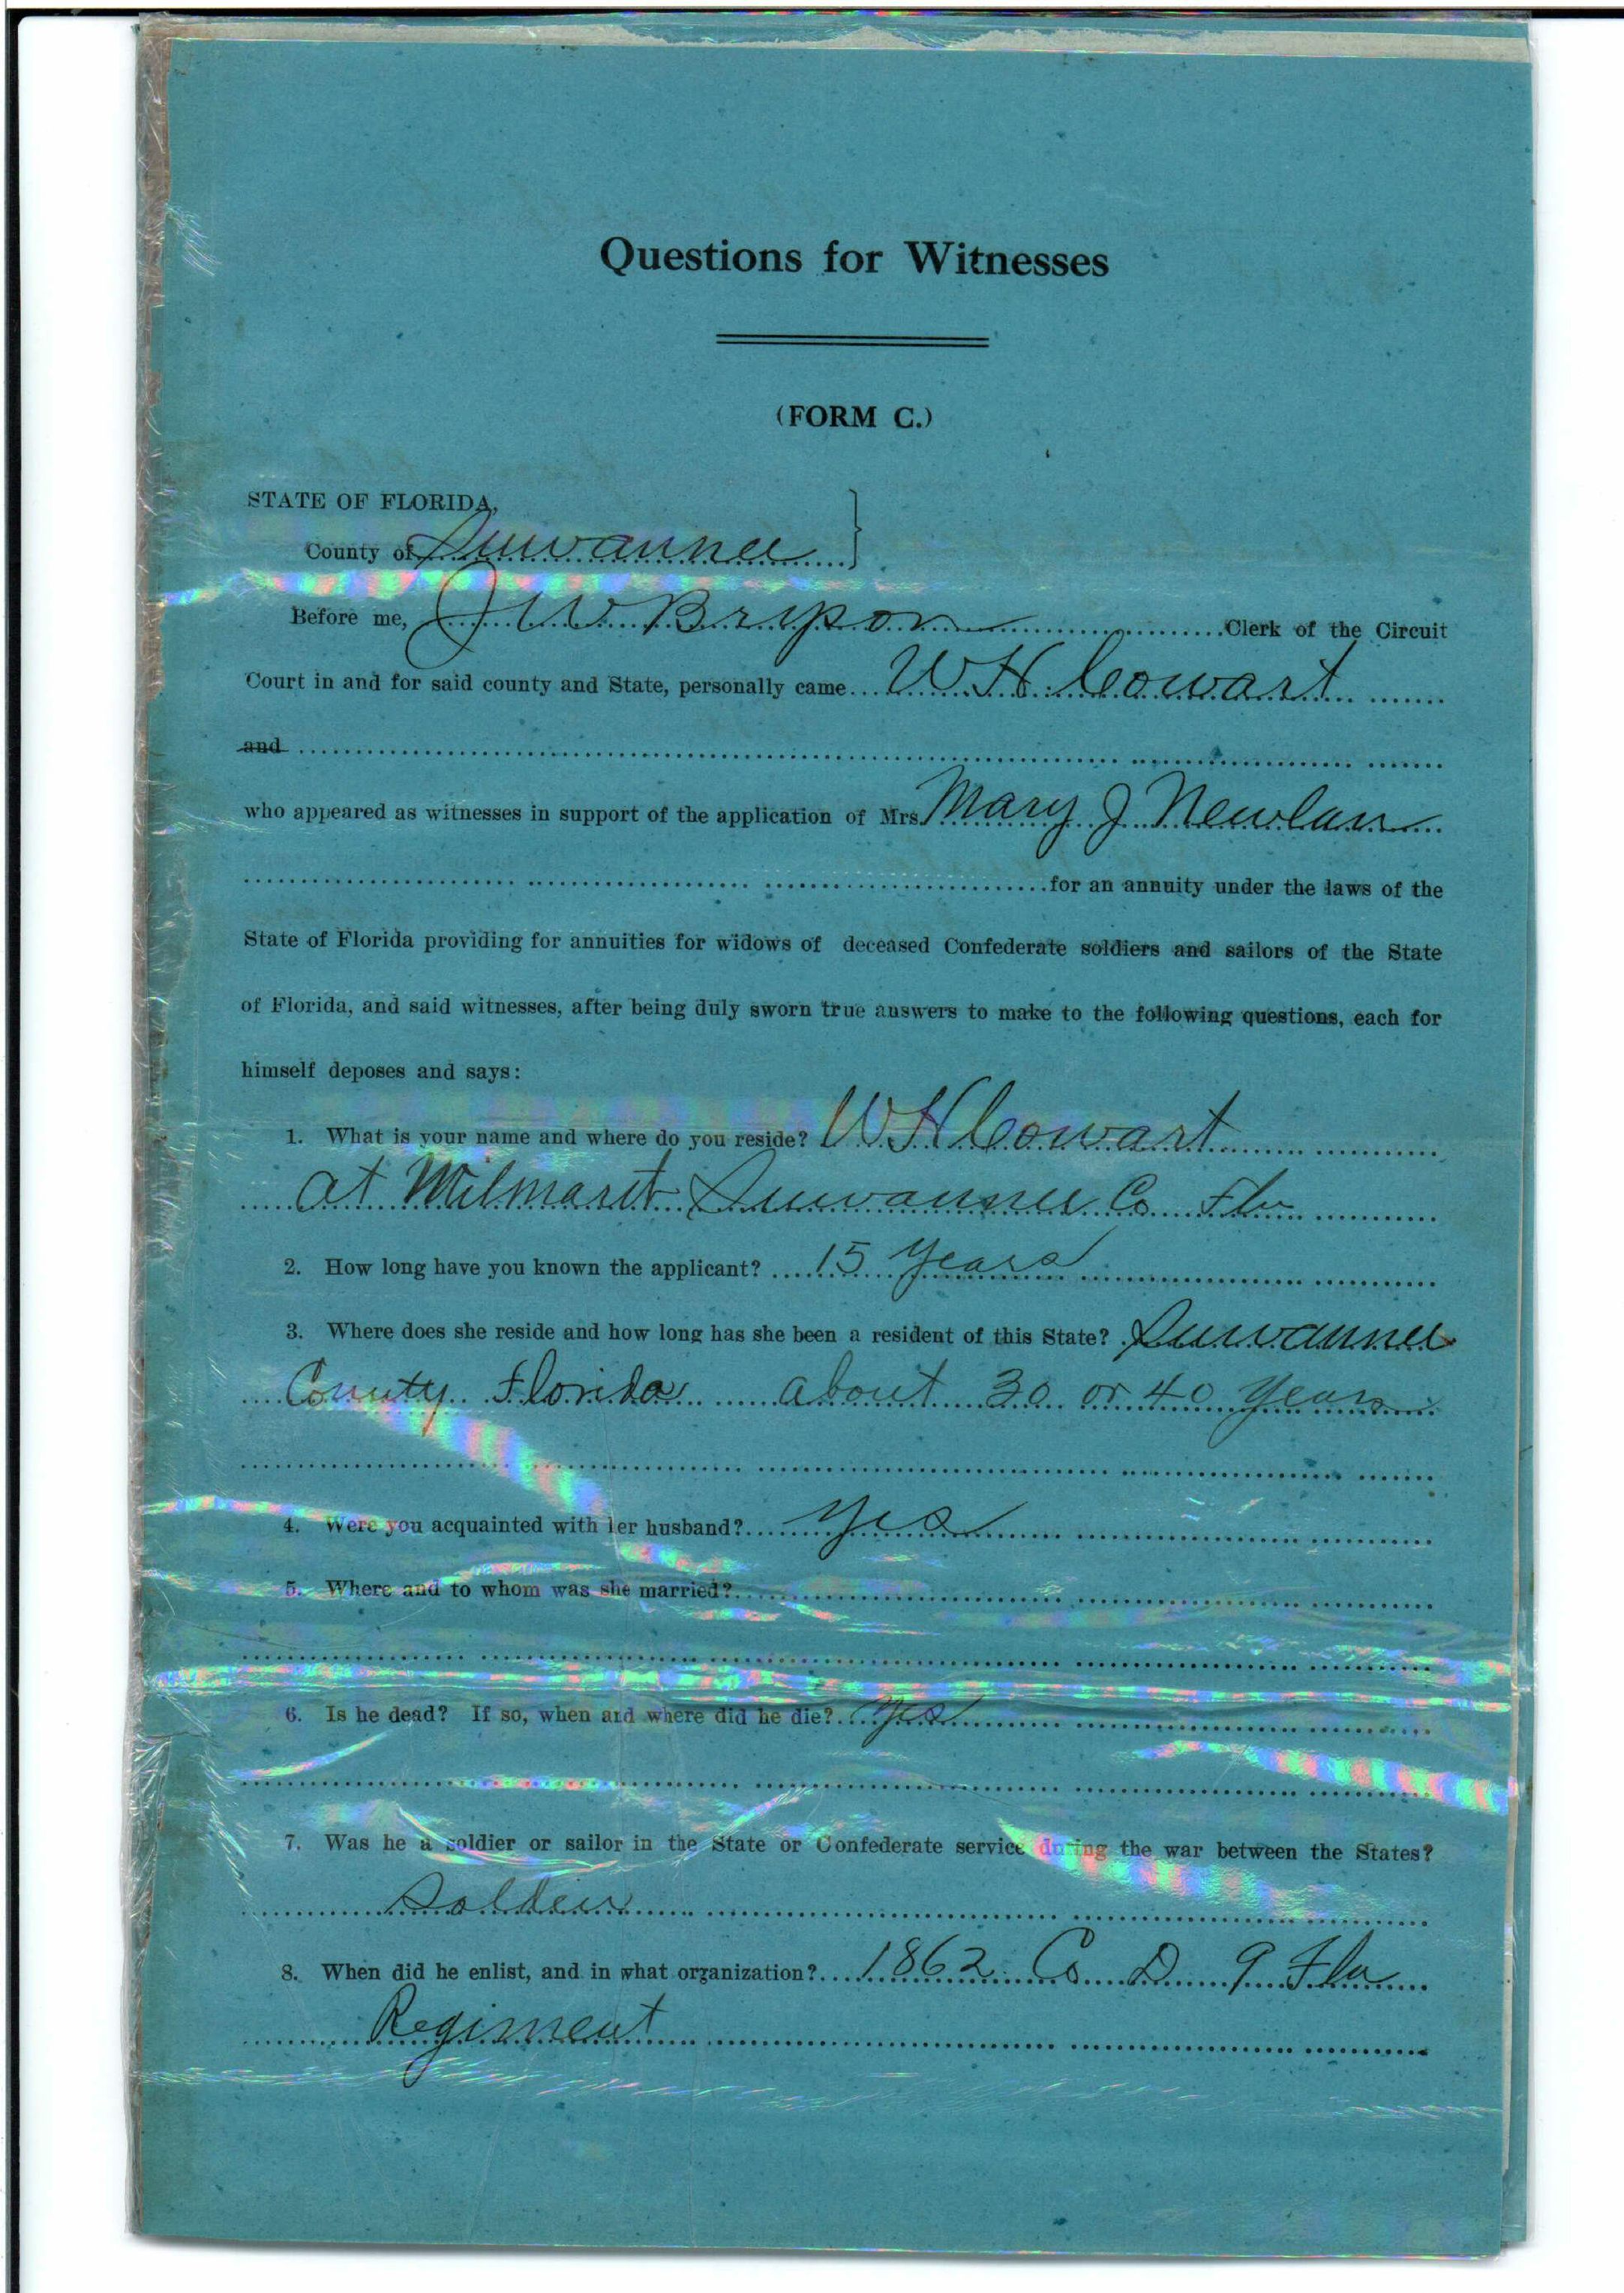 Questions for Witnesses
(FORM C.)
STATE OF FLORIDA,
County of Suwannee
Before me, J W Bryson Clerk of the Circuit
Court in and for said county and State, personally came W H Cowart
and
who appeared as witnesses in support of the application of Mrs. Mary J Newlan
for an annuity under the laws of the
State of Florida providing for annuities for widows of deceased Confederate soldiers and sailors of the State
of Florida, and said witnesses, after being duly sworn true answers to make to the following questions, each for
himself deposes and says:
1. What is your name and where do you reside? W H Cowart
at Suwannee Co Fla
2. How long have you known the applicant? 15 years
3. Where does she reside and how long has she been a resident of this State? Suwannee
County Florida about 30 or 40 years
4. Were you acquainted with her husband? yes
5. Where and to whom was she married?
6. Is he dead? If so, when and where did he die? yes
7. Was he a soldier or sailor in the State or Confederate service during the war between the States?
Soldier
8. When did he enlist, and in what organization? 1862 Co D 9 Fla
Regiment